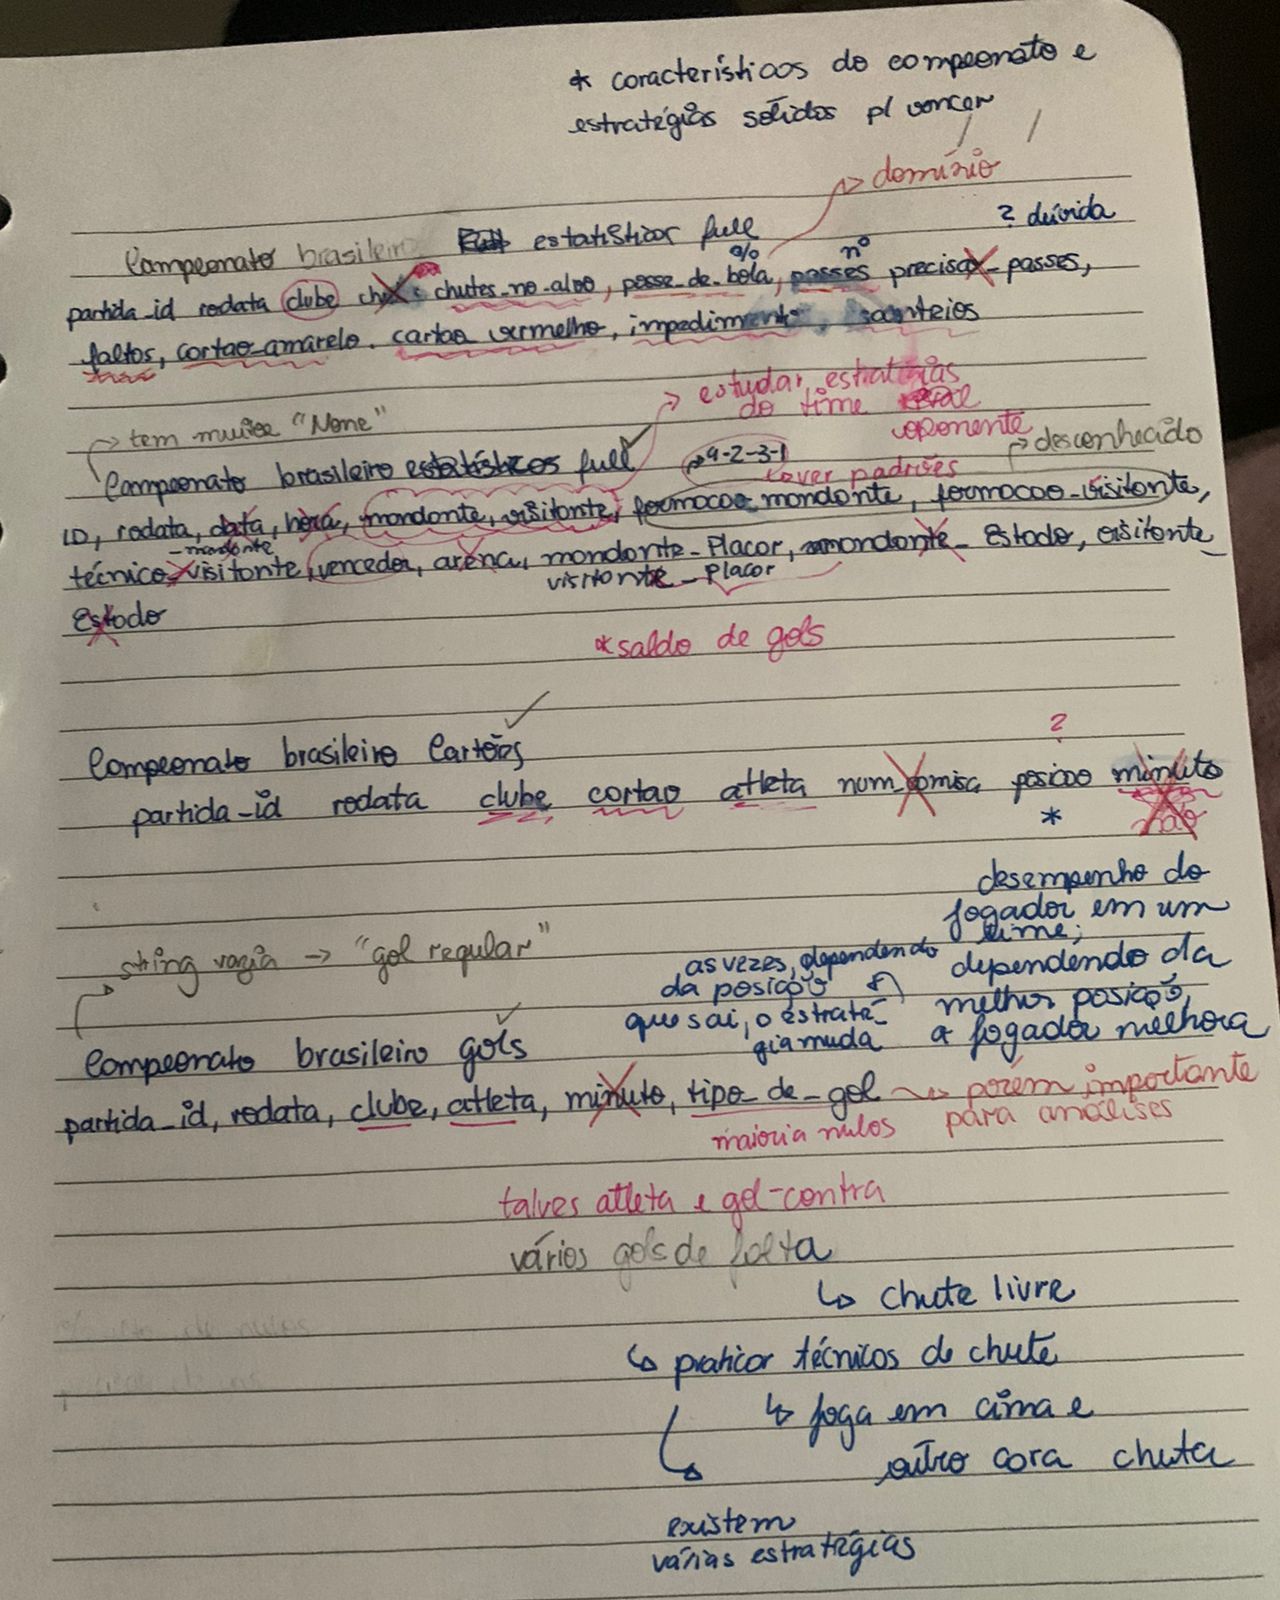 * características do campeonato e
estratégias sólidas p/ vencer
domínio
? dúvida
Campeonato brasileiro estatísticas full
% nº
partida_id rodata clube chutes chutes_no_alvo, posse_de_bola, passes precisao_passes,
faltos, cartao_amarelo. cartao vermelho, impedimento, scanteios
estudar estratégias
do time
oponente
tem muitos "None"
desconhecido
4-2-3-1
Campeonato brasileiro estatísticos full
tover padrões
ID, rodata, data, hora, mandante, visitante, formacao mandante, formacao_visitante,
_mandante
técnico_visitante, vencedor, arena, mandante_Placar, mandante_Estado, visitante_
visitante_Placar
Estado
*saldo de gols
Campeonato brasileiro Cartões
?
partida_id rodata clube cartao atleta num_camisa posicao minuto
*
não
desempenho do
jogador em um
time;
dependendo da
melhor posição,
o jogador melhora
as vezes, dependendo
da posição
que sai, o estraté-
gia muda
string vazia → "gol regular"
Campeonato brasileiro gols
partida_id, rodata, clube, atleta, minuto, tipo_de_gol → porém importante
maioria nulos para análises
talves atleta e gol-contra
vários gols de falta
↳ chute livre
↳ praticar técnicas de chute
↳ joga em cima e
outro cara chuta
existem
várias estratégias